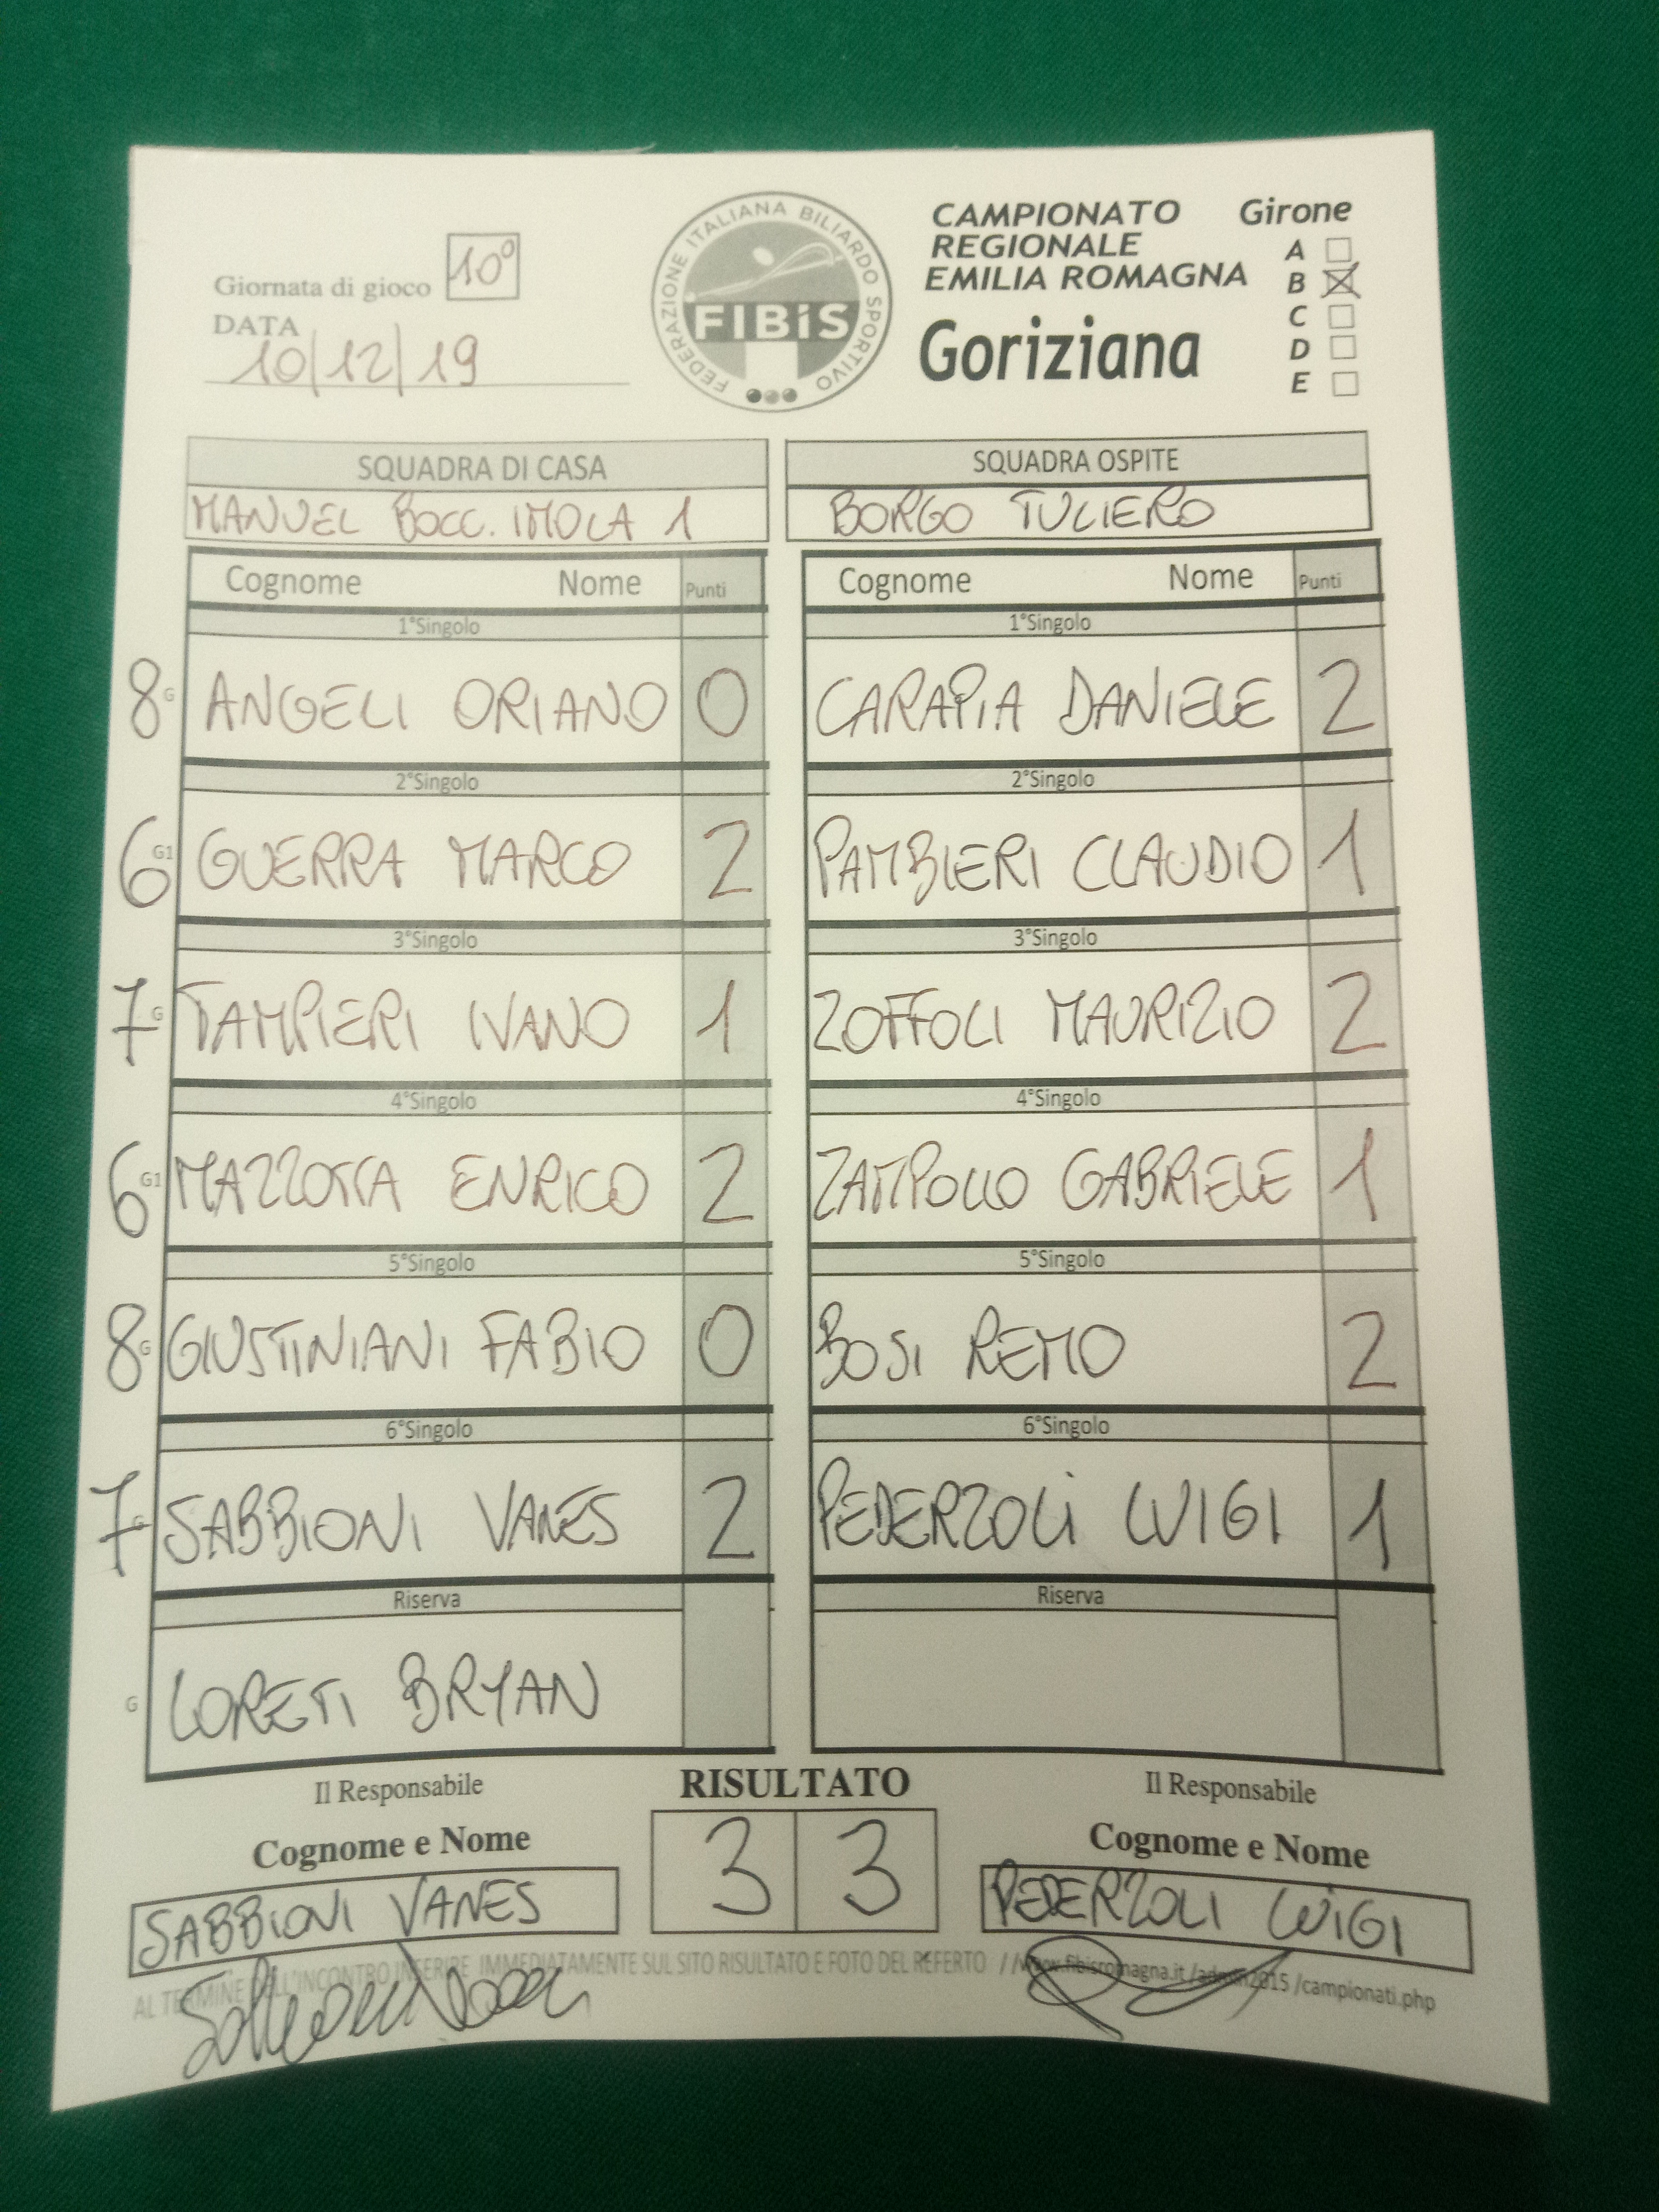 Giornata di gioco 10°
DATA
10/12/19
FEDERAZIONE ITALIANA BILIARDO SPORTIVO
FIBiS
CAMPIONATO
REGIONALE
EMILIA ROMAGNA
Goriziana
Girone
A
B
C
D
E
SQUADRA DI CASA SQUADRA OSPITE
MANUEL BOCC. IMOLA 1 BORGO TULIERO
Cognome Nome Punti Cognome Nome Punti
1°Singolo 1°Singolo
8 G ANGELI ORIANO 0 CARAPIA DANIELE 2
2°Singolo 2°Singolo
6 G1 GUERRA MARCO 2 PAMBIERI CLAUDIO 1
3°Singolo 3°Singolo
7 G TAMPIERI IVANO 1 ZOFFOLI MAURIZIO 2
4°Singolo 4°Singolo
6 G1 MAZZOTTA ENRICO 2 ZAMPOLLO GABRIELE 1
5°Singolo 5°Singolo
8 G GIUSTINIANI FABIO 0 BOSI REMO 2
6°Singolo 6°Singolo
7 G SABBIONI VANES 2 PEDERZOLI LUIGI 1
Riserva Riserva
G LORETI BRYAN
Il Responsabile RISULTATO Il Responsabile
Cognome e Nome 3 3 Cognome e Nome
SABBIONI VANES PEDERZOLI LUIGI
AL TERMINE DELL'INCONTRO INSERIRE IMMEDIATAMENTE SUL SITO RISULTATO E FOTO DEL REFERTO //www.fibisromagna.it/admin2015/campionati.php